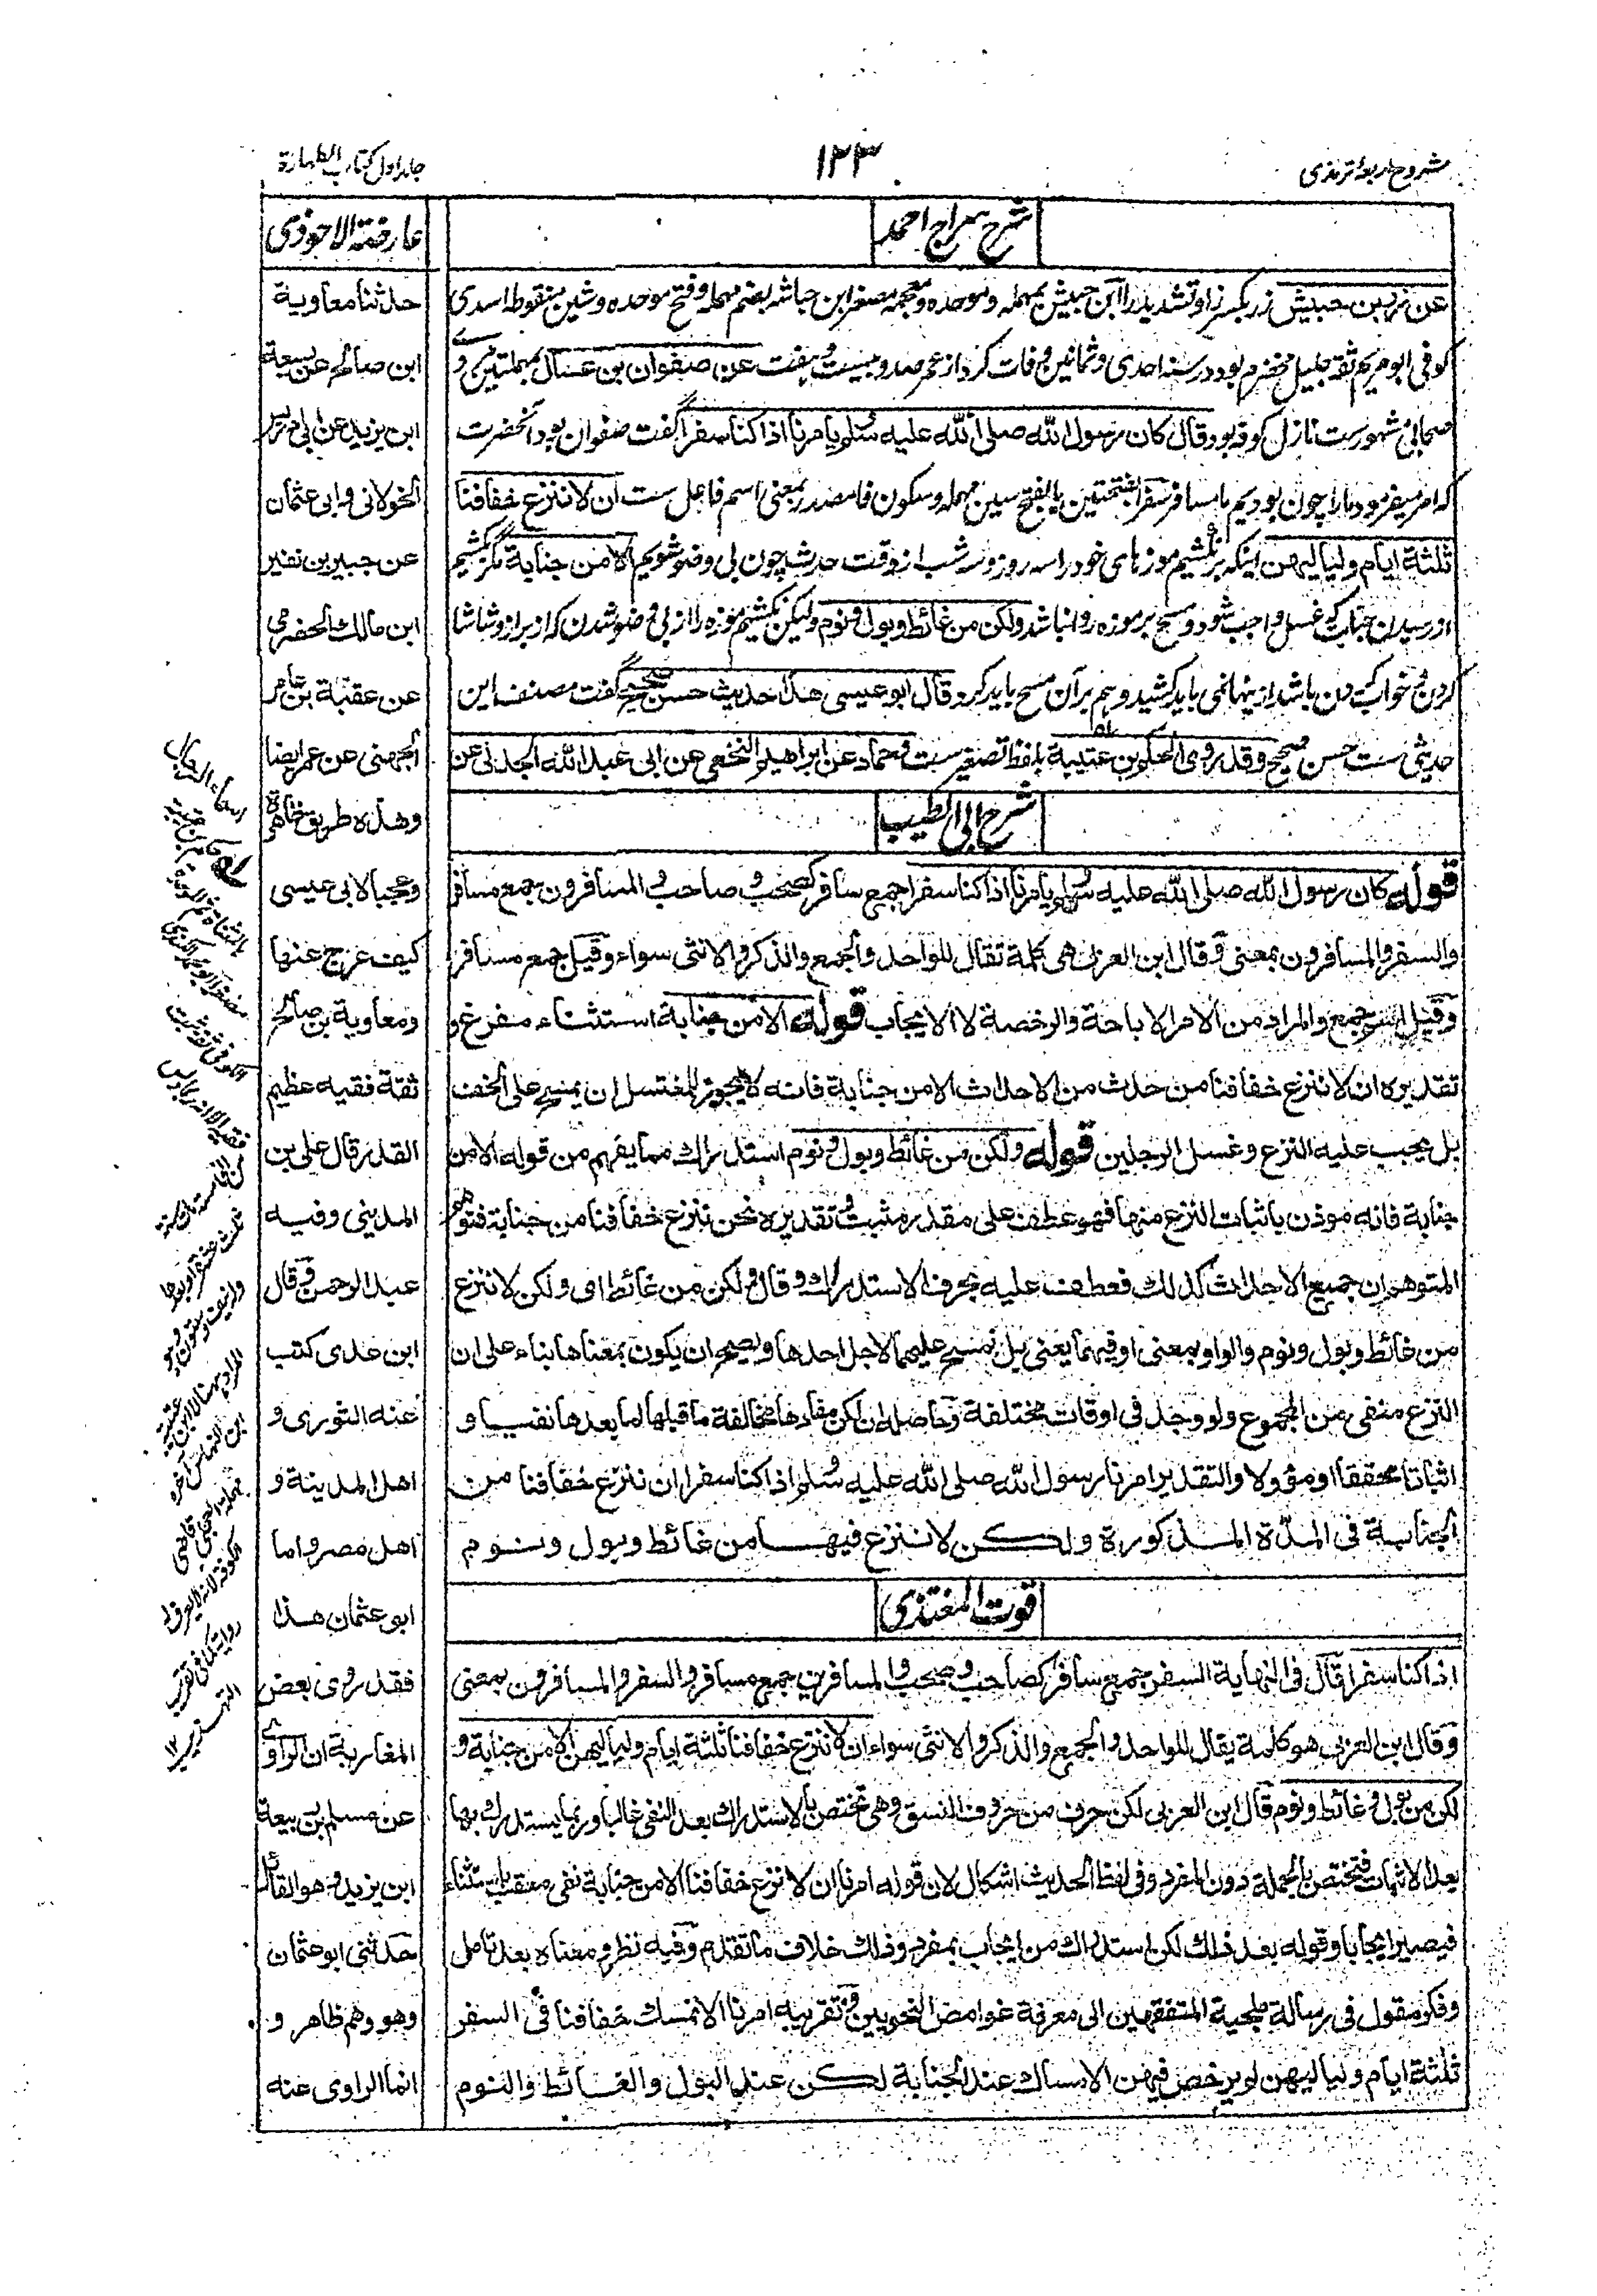 شروح اربعهٔ ترمذی
۱۲۳
جلد اول کتاب الطهارة
شرح سراج احمد
عن زر بن حبیش زر بکسر زا و تشدید را ابن حبیش بمهمله و موحده و معجمه مصغر ابن حباشه بضم مهمله و فتح موحده و شین منقوطه اسدی
کوفی ابو مریم ثقه جلیل مخضرم بود در سنه احدی و ثمانین وفات کرد از عمر صد و بیست و هفت عن صفوان بن عسال بمهملتین وے
صحابی مشهورست نازل کوفه بود قال کان رسول الله صلی الله علیه وسلم یامرنا اذا کنا سفرا گفت صفوان بود آنحضرت
که امر میفرمود ما را چون بودیم ما مسافر سفرا بفتحتین یا بفتح سین مهمله و سکون فا مصدر بمعنی اسم فاعل ست ان لا ننزع خفافنا
ثلثة ایام ولیالیهن اینکه بر نکشیم موزهای خود را سه روز و سه شب از وقت حدث چون بی وضو شویم الا من جنابة مگر کشیم
از رسیدن جنابت که غسل واجب شود و مسح بر موزه روا نباشد ولکن من غائط وبول ونوم ولیکن نکشیم موزه را از بی وضو شدن که از براز و شاشا
کردن و خواب کردن باشد ازینها نمی باید کشید و هم بر آن مسح باید کرد قال ابو عیسی هذا حدیث حسن صحیح گفت مصنف این
حدیثی ست حسن صحیح وقد روی الحکم بن عتیبة بلفظ تصغیر ست وحماد عن ابراهیم النخعی عن ابی عبد الله الجدلی عن
شرح ابی الطیب
قوله کان رسول الله صلی الله علیه وسلم یامرنا اذا کنا سفرا جمع سافر کصحب وصاحب والمسافرون جمع مسافر
والسفر والمسافرون بمعنی وقال ابن العربی هی کلمة تقال للواحد والجمع والذکر والانثی سواء وقیل جمع مسافر
وقیل اسم جمع والمراد من الامر الاباحة والرخصة لا الایجاب قوله الا من جنابة استثناء مفرغ و
تقدیره ان لا ننزع خفافنا من حدث من الاحداث الا من جنابة فانه لا یجوز للمغتسل ان یمسح علی الخف
بل یجب علیه النزع وغسل الرجلین قوله ولکن من غائط وبول ونوم استدراك مما یفهم من قوله الا من
جنابة فانه موذن باثبات النزع منها فهو عطف علی مقدر مثبت وتقدیره نحن ننزع خفافنا من جنابة فتوهم
المتوهم ان جمیع الاحداث کذلك فعطف علیه بحرف الاستدراك وقال ولکن من غائط ای ولکن لا ننزع
من غائط وبول ونوم والواو بمعنی او فیهما یعنی بل نمسح علیهما لاجل احدها ویصح ان یکون بمعناها بناء علی ان
النزع منفی من المجموع ولو وجد فی اوقات مختلفة وحاصله ان لکن مفادها مخالفة ما قبلها لما بعدها نفیا و
اثباتا محققا او مؤولا والتقدیر امرنا رسول الله صلی الله علیه وسلم اذا کنا سفرا ان ننزع خفافنا من
الجنابة فی المدة المذکورة ولکن لا ننزع فیها من غائط وبول ونوم
قوت المغتذی
اذا کنا سفرا قال فی النهایة السفر جمع سافر کصاحب وصحب والمسافرین جمع مسافر والسفر والمسافرون بمعنی
وقال ابن العربی هو کلمة یقال للواحد والجمع والذکر والانثی سواء ان لا ننزع خفافنا ثلثة ایام ولیالیهن الا من جنابة و
لکن من بول وغائط ونوم قال ابن العربی لکن حرف من حروف النسق وهی تختص بالاستدراك بعد النفی غالبا وربما یستدرك بها
بعد الاثبات فتختص بالجملة دون المفرد وفی لفظ الحدیث اشکال لان قوله امرنا ان لا ننزع خفافنا الا من جنابة نفی معقب باستثناء
فیصیر ایجابا وقوله بعد ذلك لکن استدراك من ایجاب بمفرد وذلك خلاف ما تقدم وفیه نظر ومعناه بعد تامل
وفکر مقول فی رسالة ملجئة المتفقهین الی معرفة غوامض النحویین وتقریبه امرنا الا نمسك خفافنا فی السفر
ثلثة ایام ولیالیهن لم یرخص فیهن الامساك عند الجنابة لکن عند البول والغائط والنوم
عارضة الاحوذی
حدثنا معاویة
ابن صالح عن ربیعة
ابن یزید عن ابی ادریس
الخولانی وابی عثمان
عن جبیر بن نفیر
ابن مالك الحضرمی
عن عقبة بن عامر
الجهنی عن عمر ایضا
وهذه طریق ظاهرة
وعجبا لابی عیسی
کیف عرج عنها
ومعاویة بن صالح
ثقة فقیه عظیم
القدر قال علی بن
المدینی وفیه
عبد الرحمن وقال
ابن عدی کتب
عنه الثوری و
اهل المدینة و
اهل مصر واما
ابی عثمان هذا
فقد روی بعض
المغاربة ان الراوی
عن مسلم بن ربیعة
ابن یزید وهو القائل
حدثنی ابو عثمان
وهو وهم ظاهر و
انما الراوی عنه
اسماء الرجال
بالمثناة ثم الموحدة
مصغرا ابو محمد الکندی
الکوفی ثقة ثبت
فقیه الا انه ربما دلس
من الخامسة مات سنة
ثلث عشرة او بعدها
وله نیف وستون